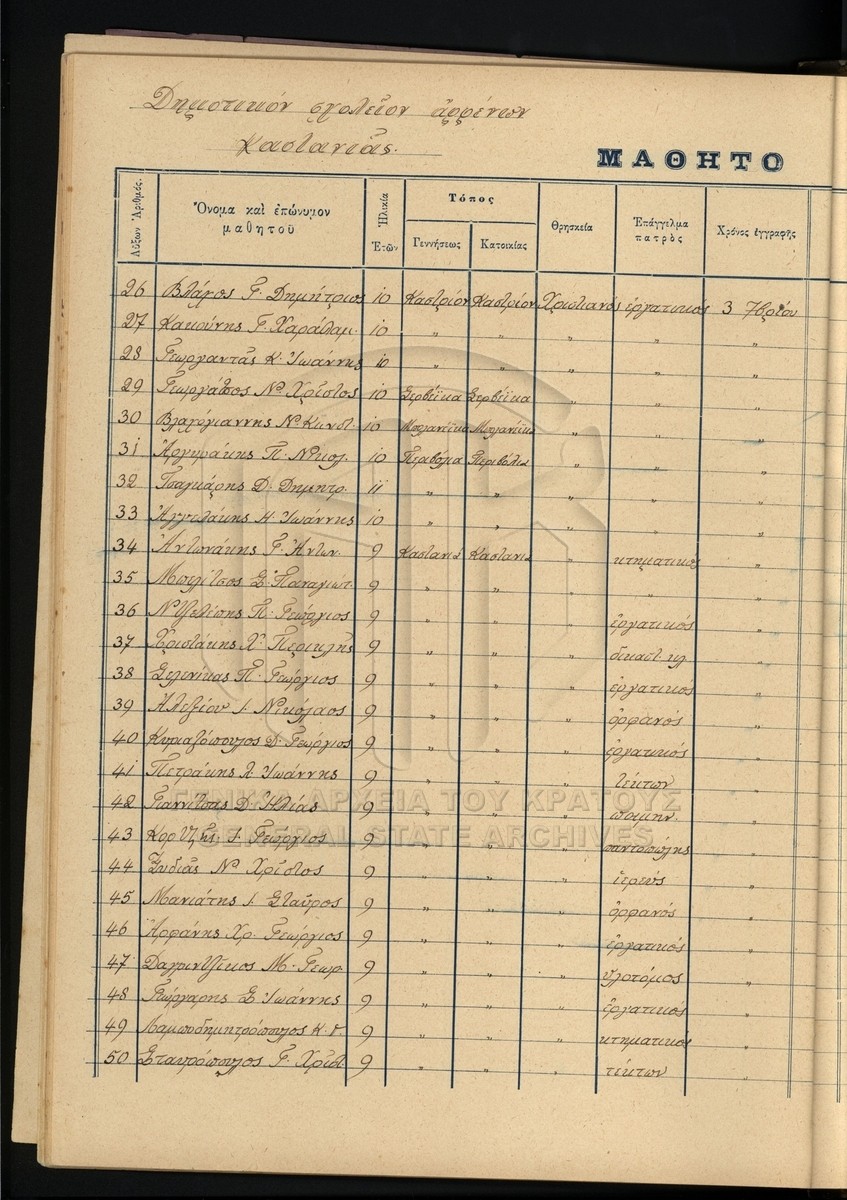 Δημοτικόν σχολεῖον ἀρρένων
Καστανιᾶς.
ΜΑΘΗΤΟ
Αὔξων Ἀριθμός.
Ὄνομα καὶ ἐπώνυμον μαθητοῦ
Ἡλικία Ἐτῶν
Τόπος
Γεννήσεως
Κατοικίας
Θρησκεία
Ἐπάγγελμα πατρὸς
Χρόνος ἐγγραφῆς
26 Βλάχος Γ. Δημήτριος 10 Καστρίον Καστρίον Χριστιανός ἐργατικός 3 7βρίου
27 Κακούνης Γ. Χαράλαμ. 10 " " " " "
28 Γεωργαντᾶς Κ. Ἰωάννης 10 " " " " "
29 Ν. Χρῖστος 10 Σερβέϊκα Σερβέϊκα " " "
30 Βλαχόγιαννης Ν. Κωνστ. 10 " " "
31 Ἀργυράκης Π. Νικολ. 10 Περιβόλια Περιβόλια " " "
32 Τσαγκάρης Δ. Δημητρ. 11 " " " " "
33 Ἀγγελάκης Κ. Ἰωάννης 10 " " " " "
34 Ἀντωνάκης Γ. Ἀντων. 9 Καστανιά Καστανιά " κτηματικός "
35 Μπελίτσος Σ. Παναγιωτ. 9 " " " " "
36 Π. Γεώργιος 9 " " " ἐργατικός "
37 Χριστάκης Χ. Περικλῆς 9 " " " δικαστ. κλ. "
38 Σελινίκας Π. Γεώργιος 9 " " " ἐργατικός "
39 Ἀλεξίου Ι. Νικόλαος 9 " " " ὀρφανός "
40 Κυριαζόπουλος Δ. Γεώργιος 9 " " " ἐργατικός "
41 Πετράκης Λ. Ἰωάννης 9 " " " τέκτων "
42 Γιαννίτσης Δ. Ἠλίας 9 " " " ποιμήν "
43 Ι. Γεώργιος 9 " " " παντοπώλης "
44 Ξυδιᾶς Ν. Χρῖστος 9 " " " ἱερεύς "
45 Μανιάτης Ι. Σταῦρος 9 " " " ὀρφανός "
46 Ἀρφάνης Χρ. Γεώργιος 9 " " " ἐργατικός "
47 Μ. Γεωρ. 9 " " " ὑλοτόμος "
48 Γεώργαρης Σ. Ἰωάννης 9 " " " ἐργατικός "
49 Λαμποδημητρόπουλος Κ. Γ. 9 " " " κτηματικός "
50 Σταυρόπουλος Γ. Χρῖστ. 9 " " " τέκτων "
ΓΕΝΙΚΑ ΑΡΧΕΙΑ ΤΟΥ ΚΡΑΤΟΥΣ
GENERAL STATE ARCHIVES